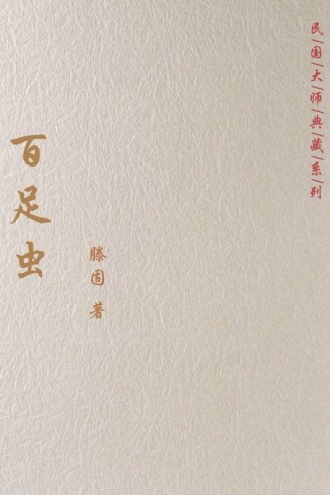 民国大师典藏系列
百足虫
滕固 著